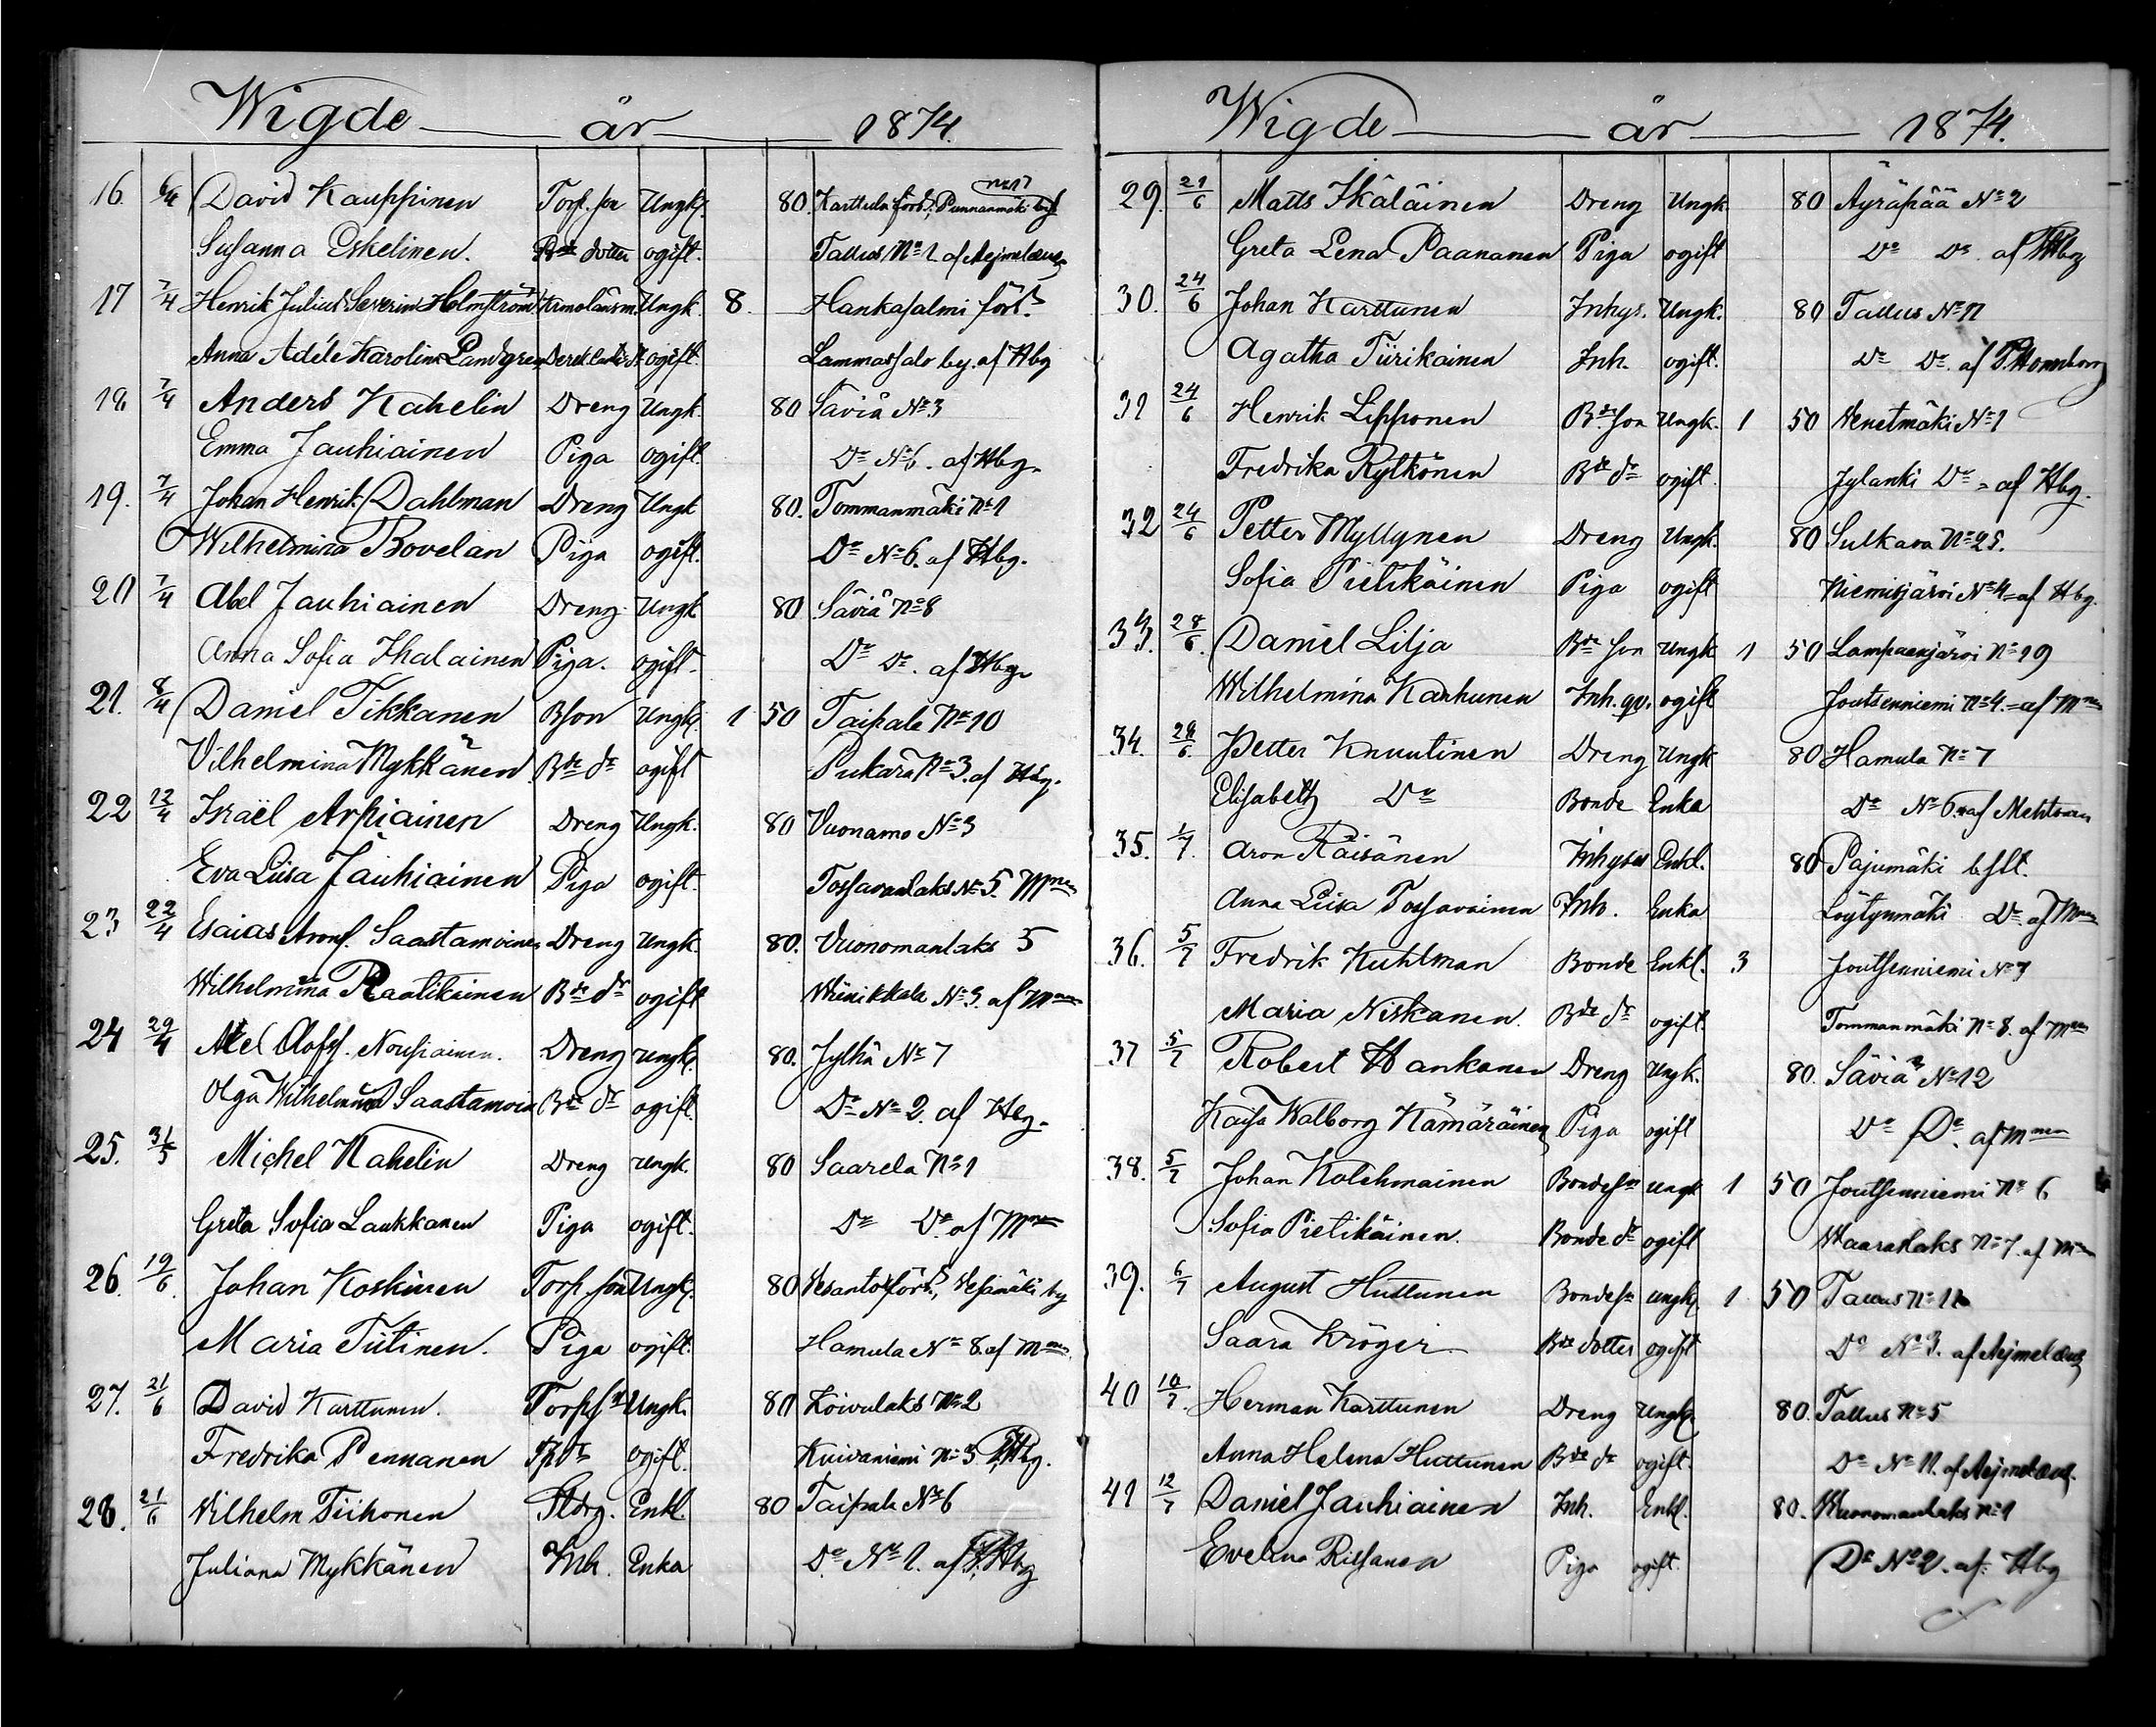 Wigde år 1874.
16. 6/4 David Kauppinen Torp. son Ungk. 80. Karttula förs., Punnanmäki by No 17
Susanna Eskelinen. Bde dotter ogift. Tallus No 1 af Aejmelæus
17 7/4 Henrik Julius Severin Holmström Kronolänsm. Ungk. 8. Hankasalmi förs.
Anna Adéle Karolina Landgren ogift. Lammassalo by. af Hbg
18 7/4 Anders Kahelin Dreng Ungk. 80 Säviä No 3
Emma Jauhiainen Piga ogift. Do No 6. af Hbg.
19. 7/4 Johan Henrik Dahlman Dreng Ungk 80. Tommanmäki No 1
Wilhelmina Bovelan Piga ogift. Do No 6. af Hbg.
20 7/4 Abel Jauhiainen Dreng Ungk 80 Säviä No 8
Anna Sofia Ihalainen Piga. ogift. Do Do. af Hbg.
21. 8/4 Daniel Tikkanen Bson Ungk. 1 50 Taipale No 10
Vilhelmina Mykkänen Bde dr ogift Pukara No 3. af Hbg.
22 12/4 Israël Arpiainen Dreng Ungk. 80 Vuonamo No 3
Eva Lisa Jauhiainen Piga ogift. Tossavanlaks No 5. Mnen
23 22/4 Esaias Aronf. Saastamoinen Dreng Ungk. 80. Vuonomanlaks 5
Wilhelmina Raatikainen Bde dr ogift Wiinikkala No 3. af Mnen
24 29/4 Abel Olofs. Nousiainen. Dreng ungk. 80. Jylhä No 7
Olga Wilhelmina Saastamoin Bde dr ogift. Do No 2. af Hbg.
25. 31/5 Michel Kahelin Dreng Ungk. 80 Saarela No 1
Greta Sofia Laukkanen Piga ogift. Do Do af Mnen
26. 19/6. Johan Koskinen Torp. son Ungk. 80 Vesanto förs., Vesamäki by
Maria Tiitinen. Piga ogift. Hamula No 8. af Mnen
27. 21/6 David Karttunen. Torps. Ungk. 80 Koivulaks No 2
Fredrika Pennanen Tp dr ogift. Kuivaniemi No 3 P.Hbg.
28. 21/6 Vilhelm Tiihonen Stdrg. Enkl. 80 Taipale No 6
Juliana Mykkänen Inh. Enka Do No 1. af P.Hbg
Wigde år 1874.
29. 21/6 Matts Ikäläinen Dreng Ungk. 80 Äyräpää No 2
Greta Lena Paananen Piga ogift Do Do. af P.Hbg
30. 24/6 Johan Karttunen Inhys. Ungk. 80 Tallus No 11
Agatha Tiirikainen Inh. ogift. Do Do. af P. Hornborg
31 24/6 Henrik Lipponen Bde son Ungk. 1 50 Venetmäki No 1
Fredrika Rytkönen Bde dr ogift. Jylänki Do = af Hbg.
32 24/6 Petter Myllynen Dreng Ungk. 80 Sulkava No 25.
Sofia Pietikäinen Piga ogift Niemisjärvi No 4 = af Hbg.
33. 28/6. Daniel Lilja Bde son Ungk 1 50 Lampaanjärvi No 19
Wilhelmina Karhunen Inh. qv. ogift Joutsenniemi No 4. = af Mnen
34. 28/6. Petter Knuutinen Dreng Ungk 80 Hamula No 7
Elisabeth Do Bonde Enka Do No 6. af Mehtonen
35. 1/7. Aron Räisänen Inhyses Enkl. 80 Pajumäki bslt.
Anna Lisa Tossavainen Inh. Enka Löytynmäki Do af Mnen
36. 5/7 Fredrik Kuhlman Bonde Enkl. 3 Joutsenniemi No 3
Maria Niskanen. Bde dr ogift. Tommanmäki No 8. af Mnen
37 5/7 Robert Hankanen Dreng Ungk. 80. Säviä No 12
Kaisa Walborg Kämäräinen Piga ogift Do Do. af Mnen
38. 5/7 Johan Kolehmainen Bondeson ungk 1 50 Joutsenniemi No 6
Sofia Pietikäinen. Bonde dr ogift Waaraslaks No 7. af Mnen
39. 6/7 August Huttunen Bondeson ungk. 1 50 Tallus No 11
Saara Kröger Bde dotter ogift Do No 3. af Aejmelæus
40 10/7. Herman Karttunen Dreng Ungk. 80. Tallus No 5
Anna Helena Huttunen Bde dr ogift. Do No 11. af Aejmelæus.
41 12/7 Daniel Jauhiainen Inh. Enkl. 80. Wuonomanlaks No 1
Evelina Rissanen Piga ogift. Do No 2. af Hbg